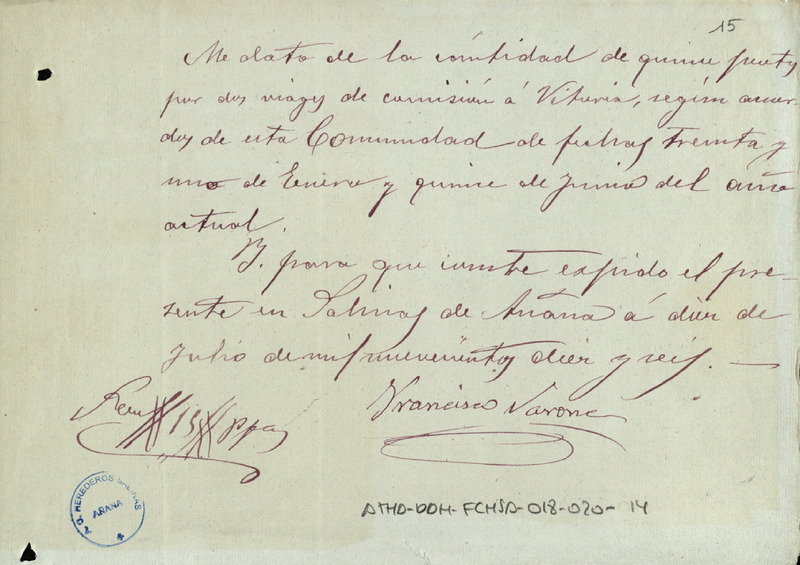 15
Me dato de la cantidad de quince pesetas
por dos viages de comisión á Vitoria, según acuer-
dos de esta Comunidad de fechas treinta y
uno de Enero y quince de Junio del año
actual.
Y. para que conste expido el pre-
sente en Salinas de Añana á diez de
Julio de mil nuevecientos diez y seis. —
Son # 15 # ptas
Francisco Varona
A. G. HEREDEROS SALINAS
AÑANA
ATHA-DAH-FCHSA-018-020-14